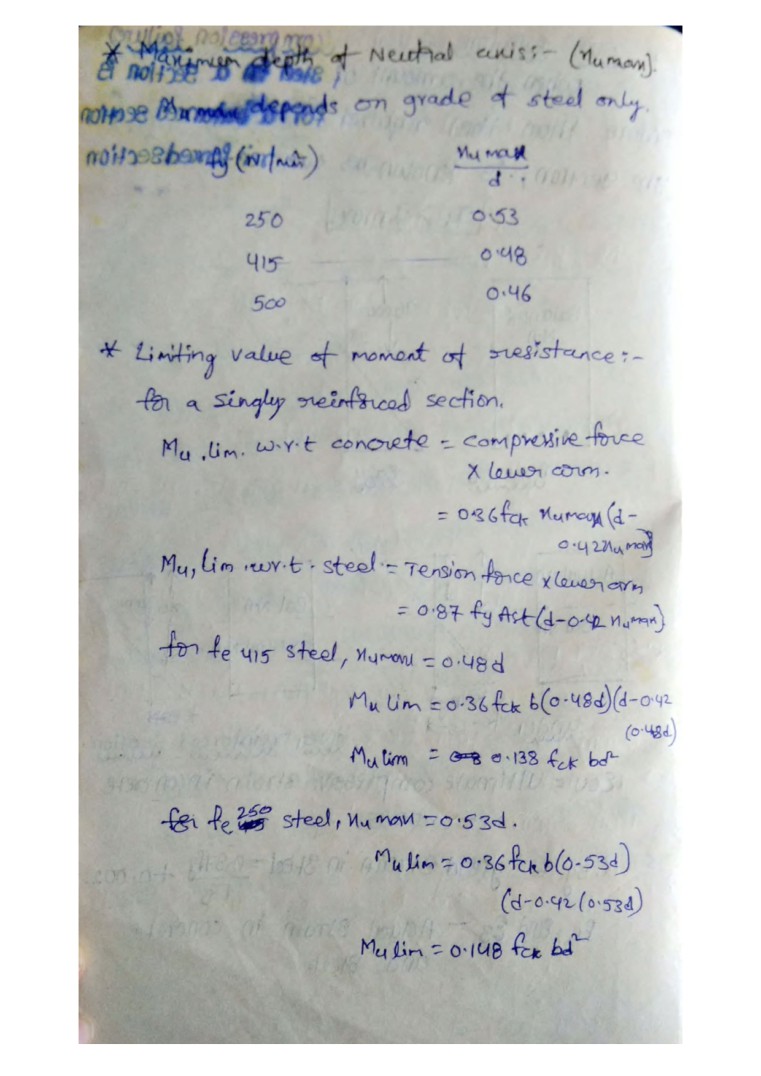 * Maximum depth of Neutral axis:- (xumax).
xumax depends on grade of steel only.
fy (N/mm²) xumax/d
250 0.53
415 0.48
500 0.46
* Limiting value of moment of resistance:-
for a singly reinforced section.
Mu,lim. w.r.t concrete = compressive force
x lever arm.
= 0.36 fck xumax (d-
0.42xumax)
Mu,lim w.r.t. steel = Tension force x lever arm
= 0.87 fy Ast (d-0.42 xumax)
for fe 415 steel, xumax = 0.48d
Mu lim = 0.36 fck b(0.48d)(d-0.42
(0.48d)
Mu lim = 0.138 fck bd²
for fe 250 steel, xumax = 0.53d.
Mu lim = 0.36 fck b(0.53d)
(d-0.42(0.53d)
Mu lim = 0.148 fck bd²